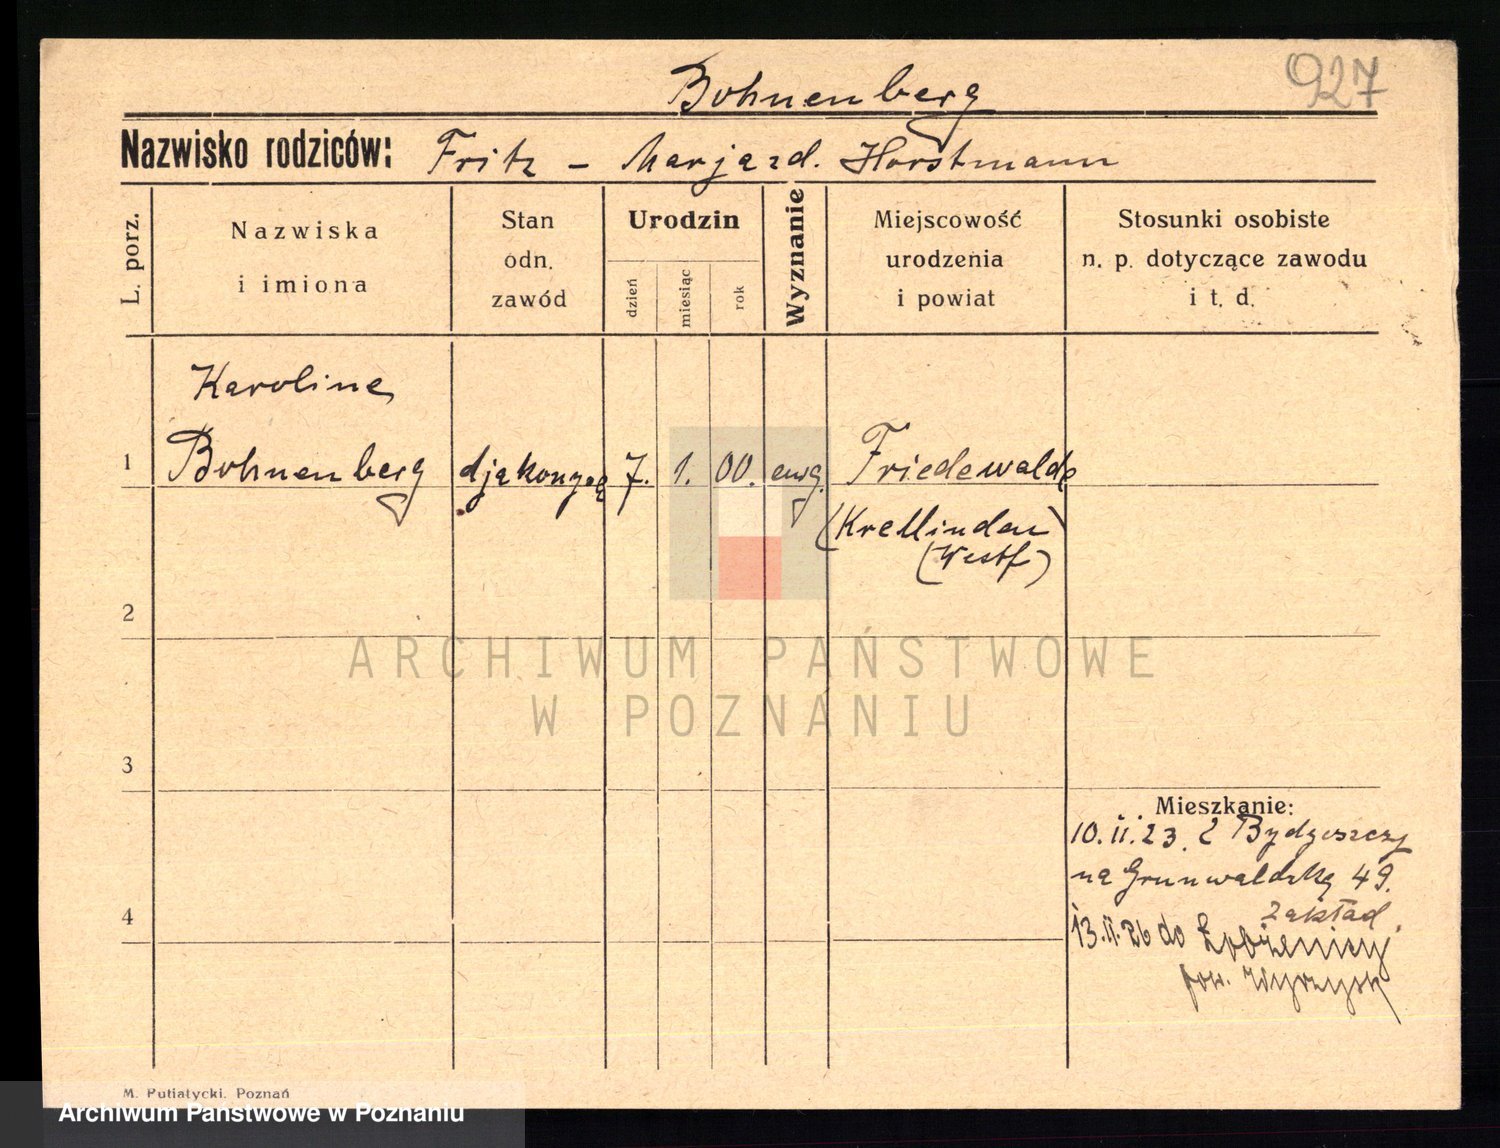 927
Bohnenberg
Nazwisko rodziców: Fritz - Marja zd. Horstmann
L. porz.
Nazwiska
i imiona
Stan
odn.
zawód
Urodzin
dzień
miesiąc
rok
Wyznanie
Miejscowość
urodzenia
i powiat
Stosunki osobiste
n. p. dotyczące zawodu
i t. d.
Karoline
1 Bohnenberg djakonysa 7. 1. 00. ewg. Friedewalde
(Westf)
2
3
4
Mieszkanie:
10.II.23. z Bydgoszczy
na Grunwaldzką 49.
zakład.
13.II.26 do Łobżenicy
pow. Wyrzysk
M. Putiatycki. Poznań
ARCHIWUM PAŃSTWOWE
W POZNANIU
Archiwum Państwowe w Poznaniu